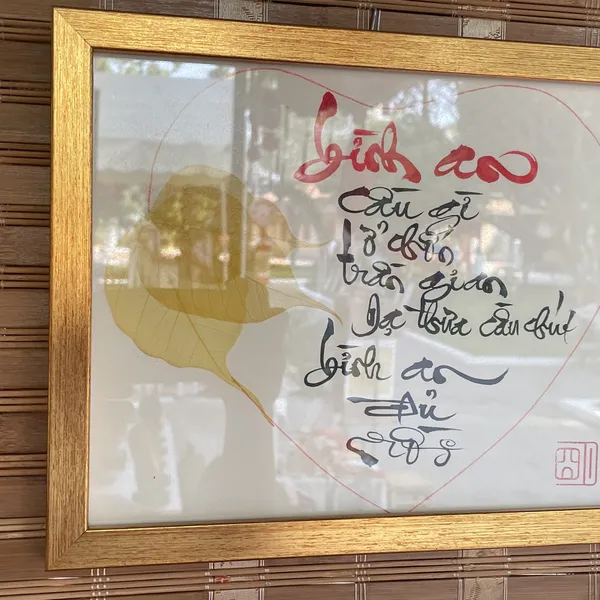 bình an
cần gì
ở chốn
trần gian
Dạ thưa cần chút
bình an
Đủ